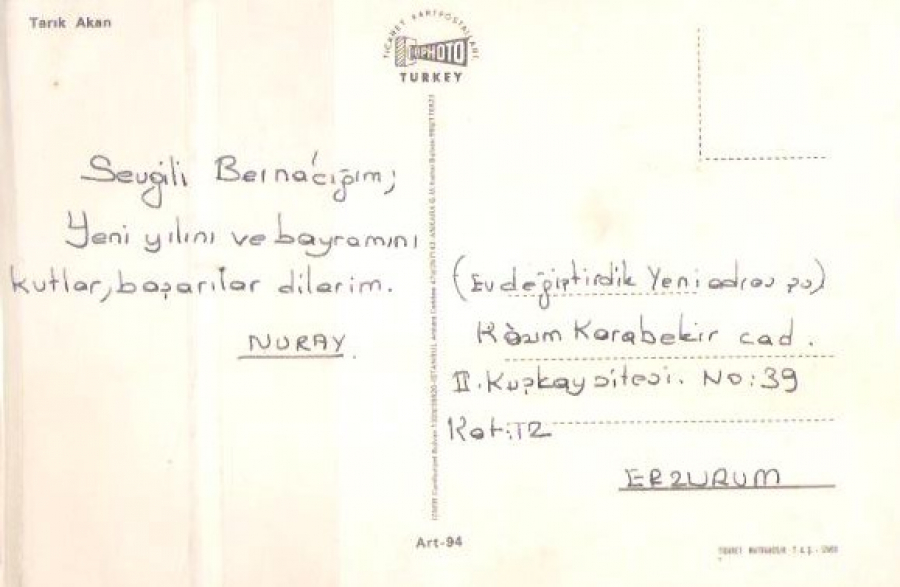 Tarık Akan
TİCARET KARTPOSTALLARI
TOPHOTO
TURKEY
Sevgili Berna'cığım;
Yeni yılını ve bayramını
kutlar, başarılar dilerim.
NURAY.
(Ev değiştirdik Yeni adres şu)
Kâzım Karabekir cad.
II. Kuşkay sitesi. No: 39
Kat: 12
ERZURUM
Art-94